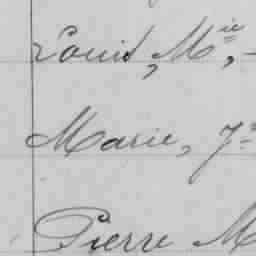 Louis, Mie, -
Marie, J
Pierre M